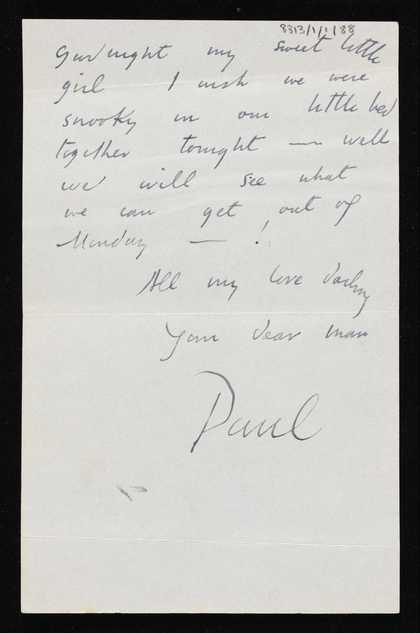 8313/1/1/88
Goodnight my sweet little
girl I wish we were
snooky in our little bed
together tonight — well
we will see what
we can get out of
Monday — !
All my love darling
Your dear man
Paul